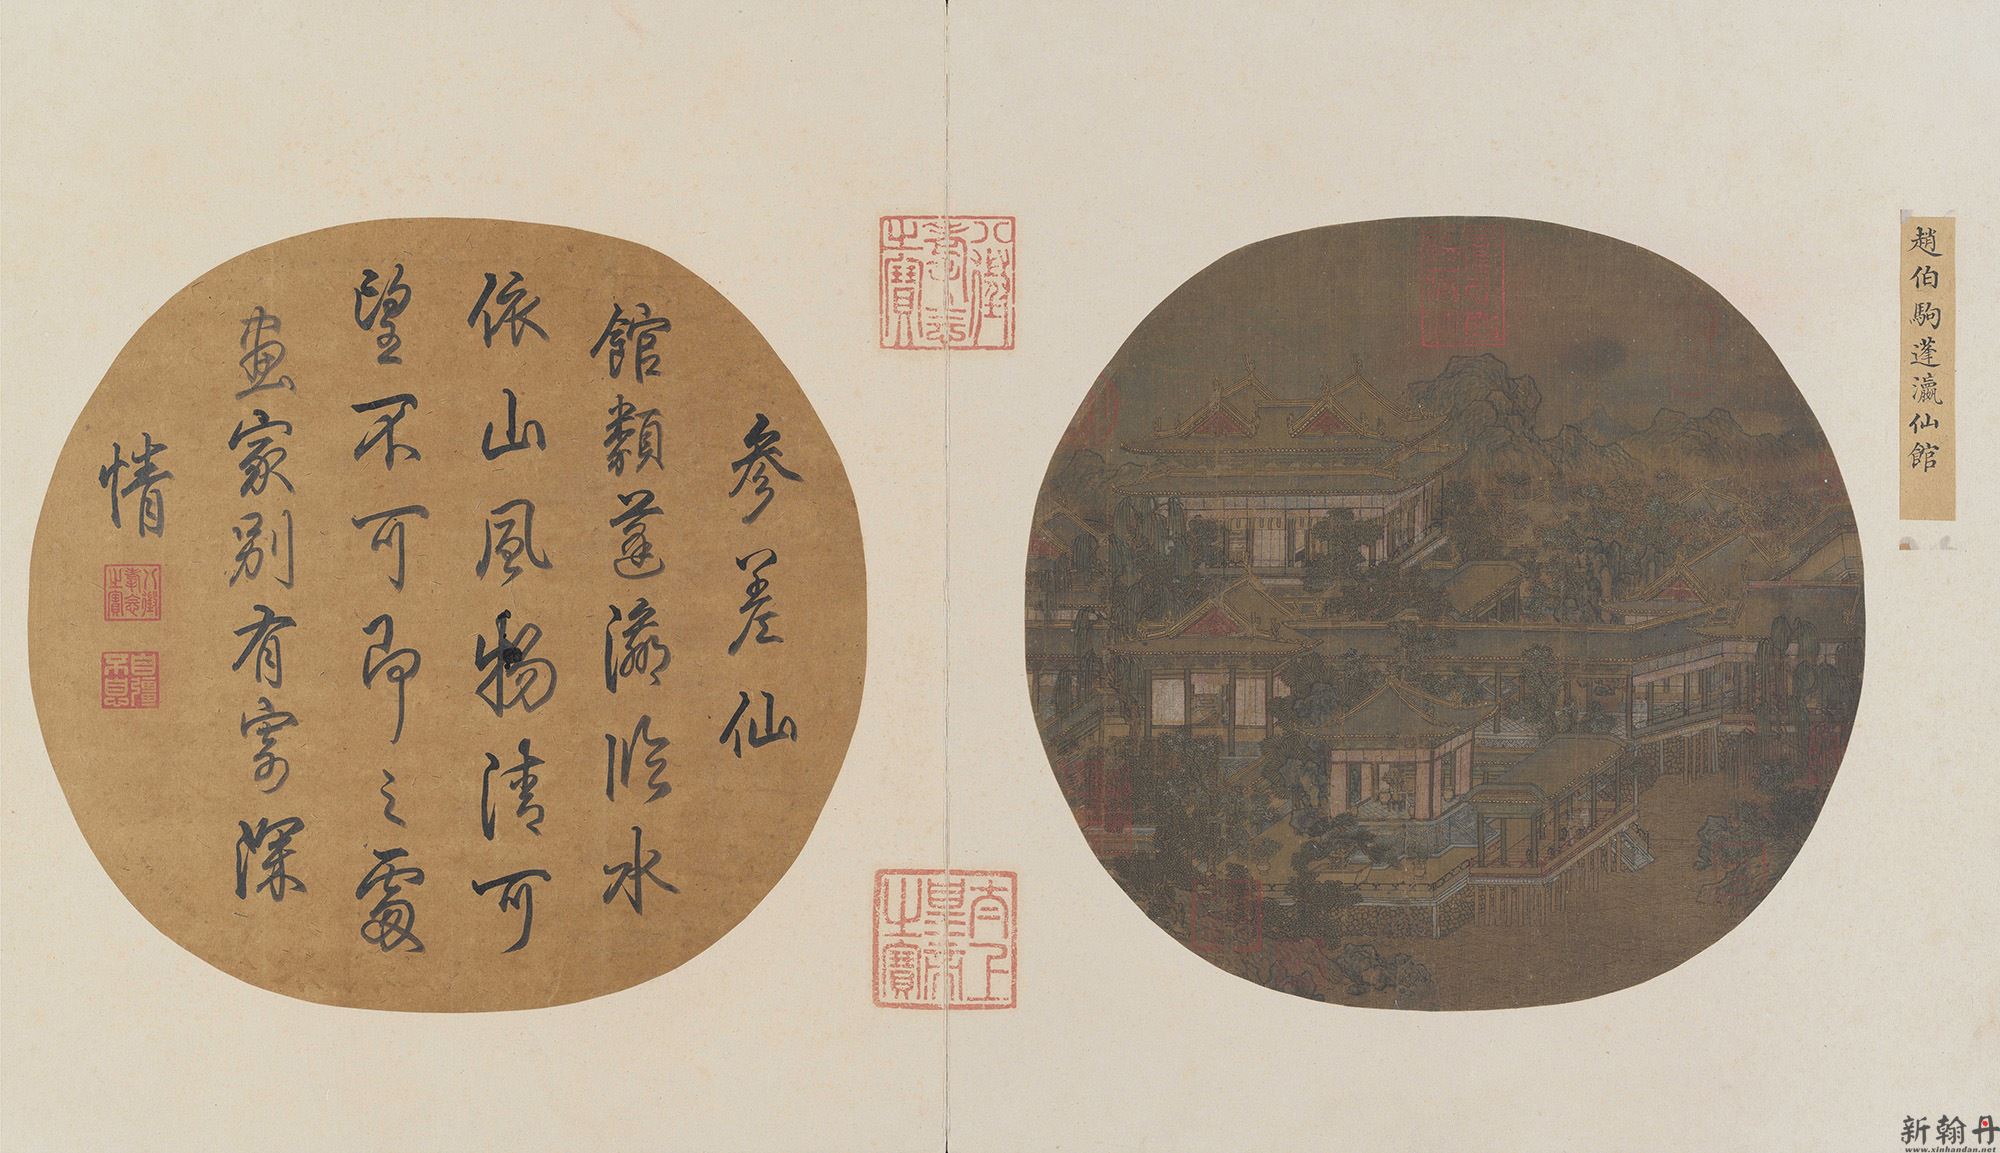 趙伯駒蓬瀛仙館
參差仙
館類蓬瀛臨水
依山風物清可
望不可即之處
畫家別有寄深
情
八徵耄念之寶
自彊不息
八徵耄念之寶
太上皇帝之寶
新翰丹
www.xinhandan.net